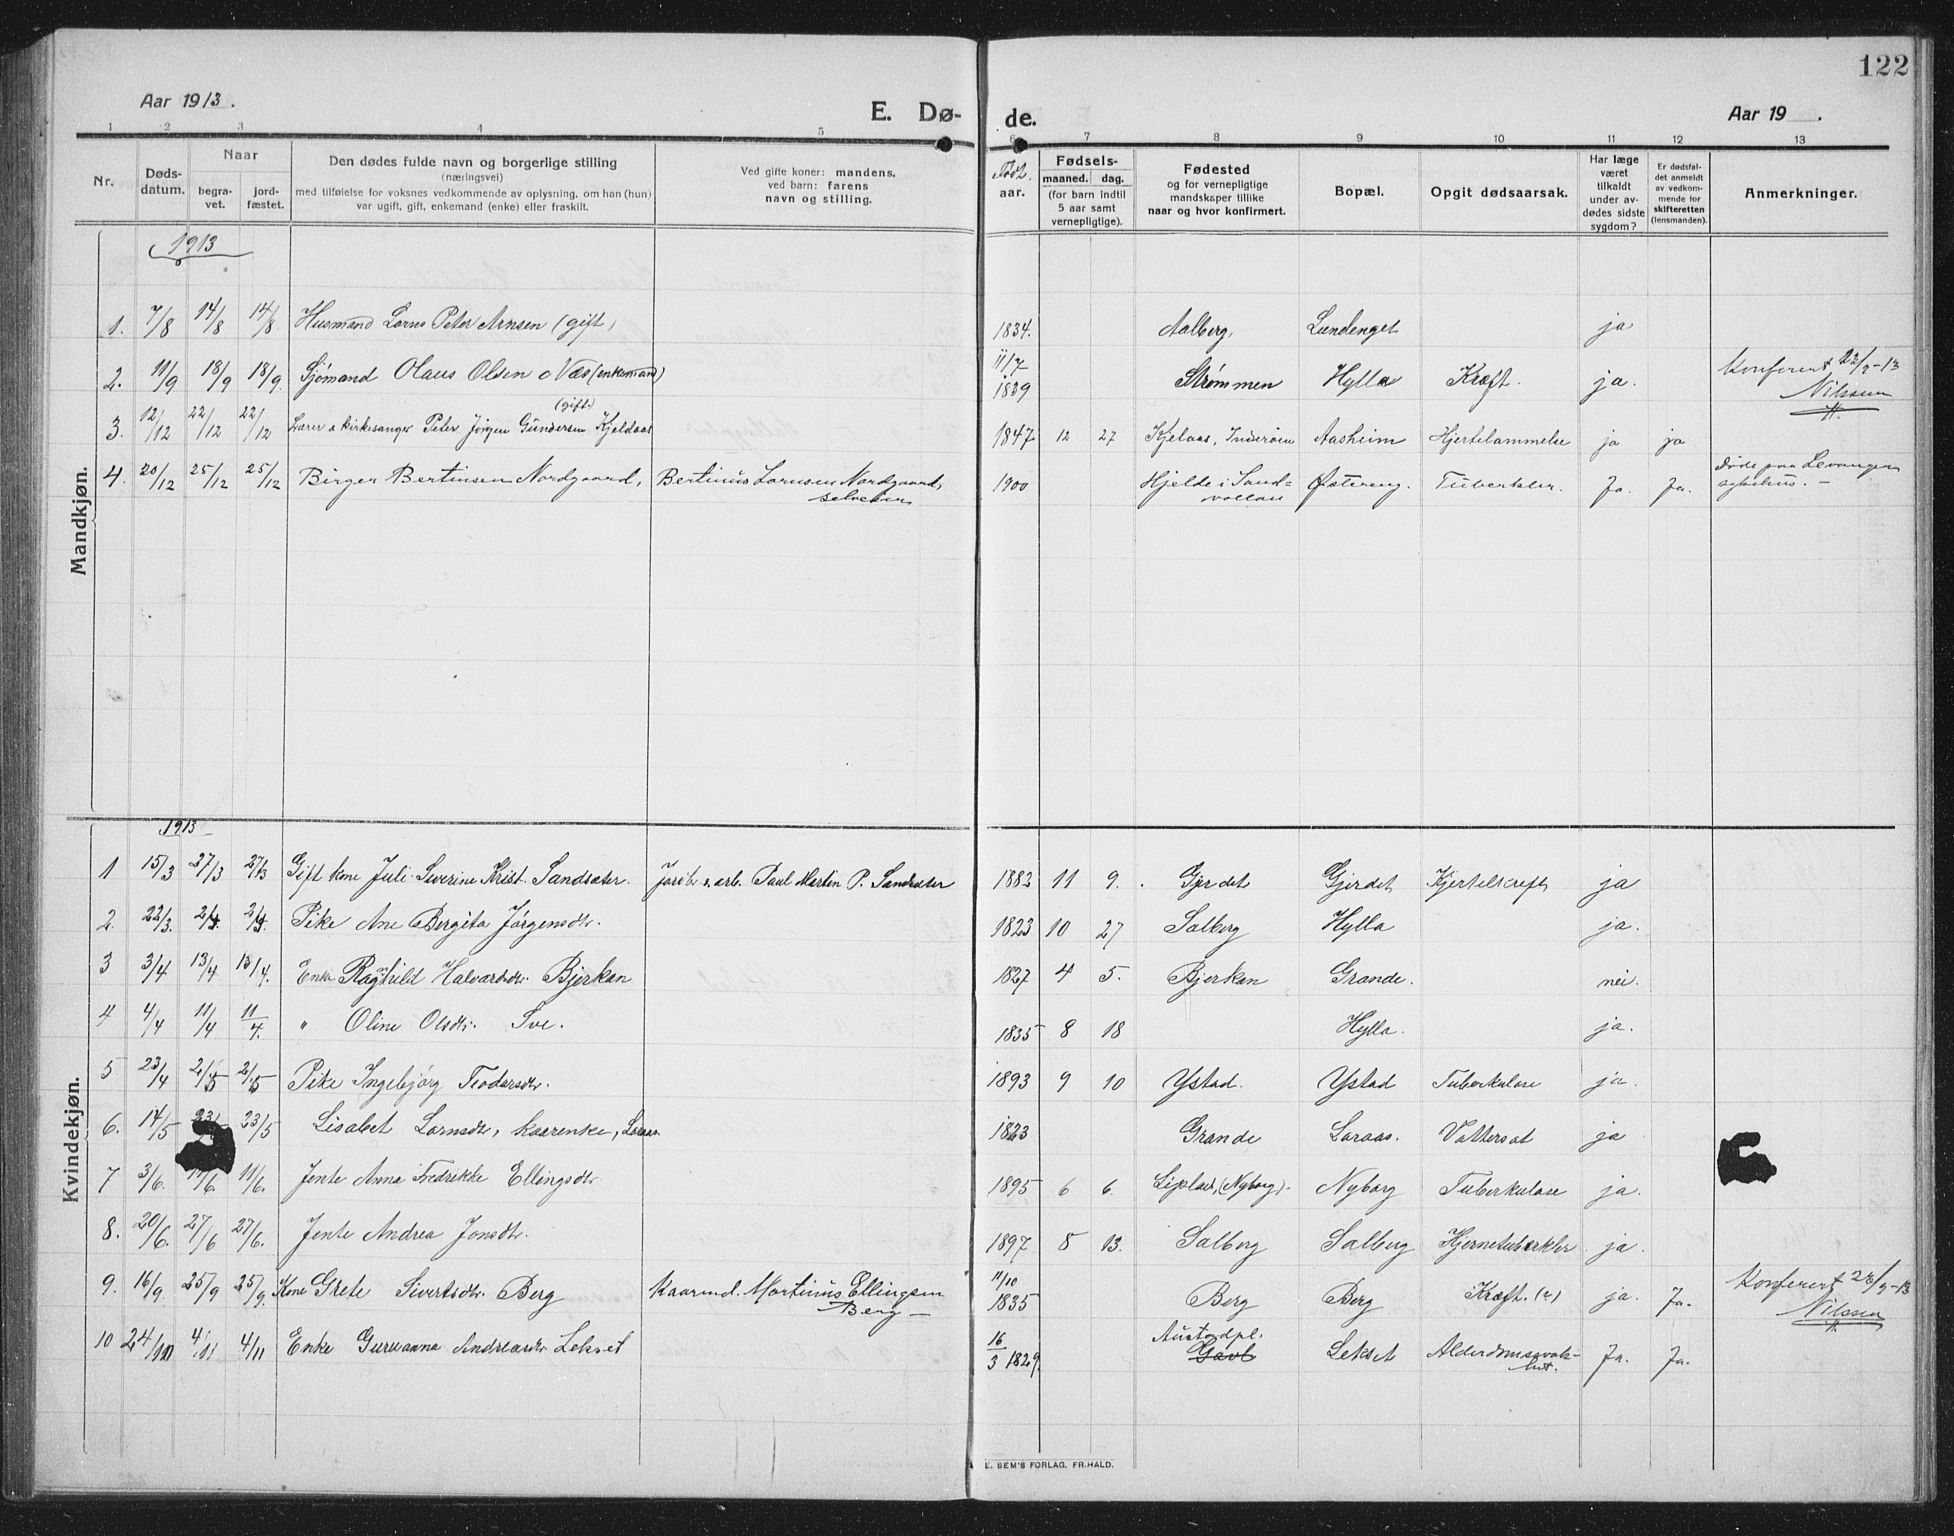 122
Aar 1913.
E. Dø- de.
Aar 19 .
1 2 3 4 5 6 7 8 9 10 11 12 13
Nr.
Døds-
datum.
Naar
begra-
vet.
jord-
fæstet.
Den dødes fulde navn og borgerlige stilling
(næringsvei)
med tilføielse for voksnes vedkommende av oplysning, om han (hun)
var ugift, gift, enkemand (enke) eller fraskilt.
Ved gifte koner: mandens,
ved barn: farens
navn og stilling.
aar.
Fødsels-
maaned. dag.
(for barn indtil
5 aar samt
vernepligtige).
Fødested
og for vernepligtige
mandskaper tillike
naar og hvor konfirmert.
Bopæl.
Opgit dødsaarsak.
Har læge
været
tilkaldt
under av-
dødes sidste
sygdom?
Er dødsfal-
det anmeldt
av vedkom-
mende for
skifteretten
(lensmanden).
Anmerkninger.
Mandkjøn.
1913
1. 7/8 14/8 14/8 Husmand Lorns Peter Arnsen (gift) 1834. Aalberg, Lundenget ja
2. 11/9 18/9 18/9. Sjømand Olaus Olsen Næs (enkemand) 11/7 1839 Strømmen Hylla Kræft. ja. Konferert 23/9-13
Nilssen
3. 12/12 22/12 22/12 Lærer o kirkesanger Peter Jørgen Gundersen Kjeldaas (gift) 1847 12 27 Kjelaas, Inderøen Aasheim Hjertelammelse ja ja
4. 20/12 25/12 25/12 Birger Bertinsen Nordgaard, Bertinus Lornsen Nordgaard, 1900 Hjelde i Sand-
vollan Østereng. Tuberkler. Ja. Ja. døde paa Levanger
sykehus. -
Kvindekjøn.
1913
1 15/3 27/3 27/3 Gift kone Juli Severine Krist. Sandsæter. Paul Martin P. Sandsæter 1883 11 9. Gjerdet Gjerdet Kjertelkreft ja
2. 22/3. 2/4. 2/4. Pike Ane Bergita Jørgensdtr. 1823 10 27 Salberg Hylla ja.
3 3/4 13/4 13/4. Enke Ragnhild Halvardsdtr. Bjerkan 1827 4 5. Bjerkan Grande. nei.
4 4/4 11/4 11/4. " Oline Olsdtr. Sve. 1835 8 18 Hylla. ja.
5. 23/4 2/5 2/5 Pike Ingebjørg Teodorsdtr. 1893 9 10 Ystad. Ystad Tuberkulose ja.
6. 14/5 23/5 Lisabet Lornsdtr, kaarenke, Loraas. 1823 Grande Loraas. Vattersot ja
7 3/6. 11/6 11/6. Jente Anna Fredrikke Ellingsdtr. 1895 6 6. (Nyborg). Nyborg Tuberkulose ja.
8. 20/6. 27/6 27/6. Jente Andrea Jonsdtr. 1897 5 13. Salberg Salberg Hjernetuberkler ja.
9. 16/9. 25/9 25/9. Kone Grete Sivertsdtr. Berg Kaarmd. Martinus Ellingsen
Berg 11/10 1835 Berg Berg Kræft. ja. Ja. Konferert 23/9-13
Nilssen
10 24/10 4/11 4/11 Enke Guruanna Andreasdtr. Lekset 16/3 1829. Austadpl.
Lekset Alderdomssvak-
het. Ja. Ja.
E. SEM'S FORLAG. FR.HALD.